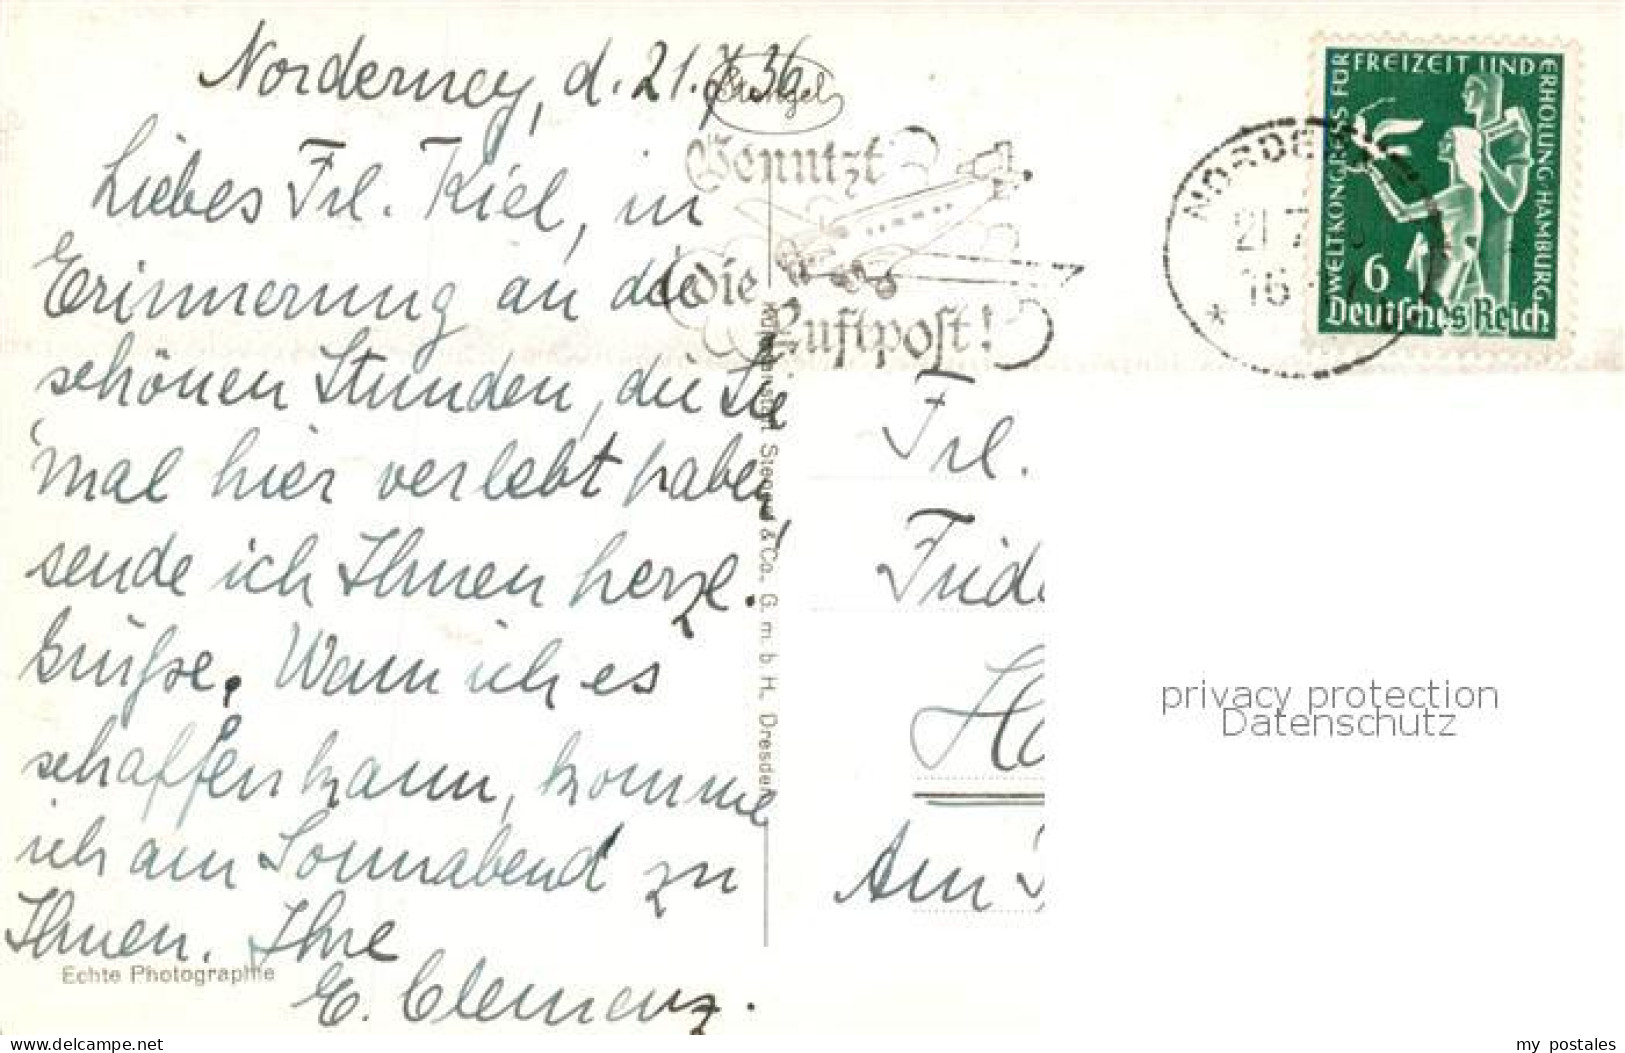 Norderney, d. 21.7.36
Stengel
Liebes Frl. Kiel, in
Erinnerung an die
schönen Stunden, die Sie
mal hier verlebt haben,
sende ich Ihnen herzl.
Grüße. Wenn ich es
schaffen kann, komme
ich am Sonnabend zu
Ihnen. Ihre
E. Clemenz.
Echte Photographie
Benutzt
die
Luftpost!
Stengel & Co. G. m. b. H. Dresden
NORDE
21 7
16
*
WELTKONGRESS FÜR FREIZEIT UND ERHOLUNG·HAMBURG
6
Deutsches Reich
Frl.
Frid
Ha
Am
privacy protection
Datenschutz
www.delcampe.net
my_postales